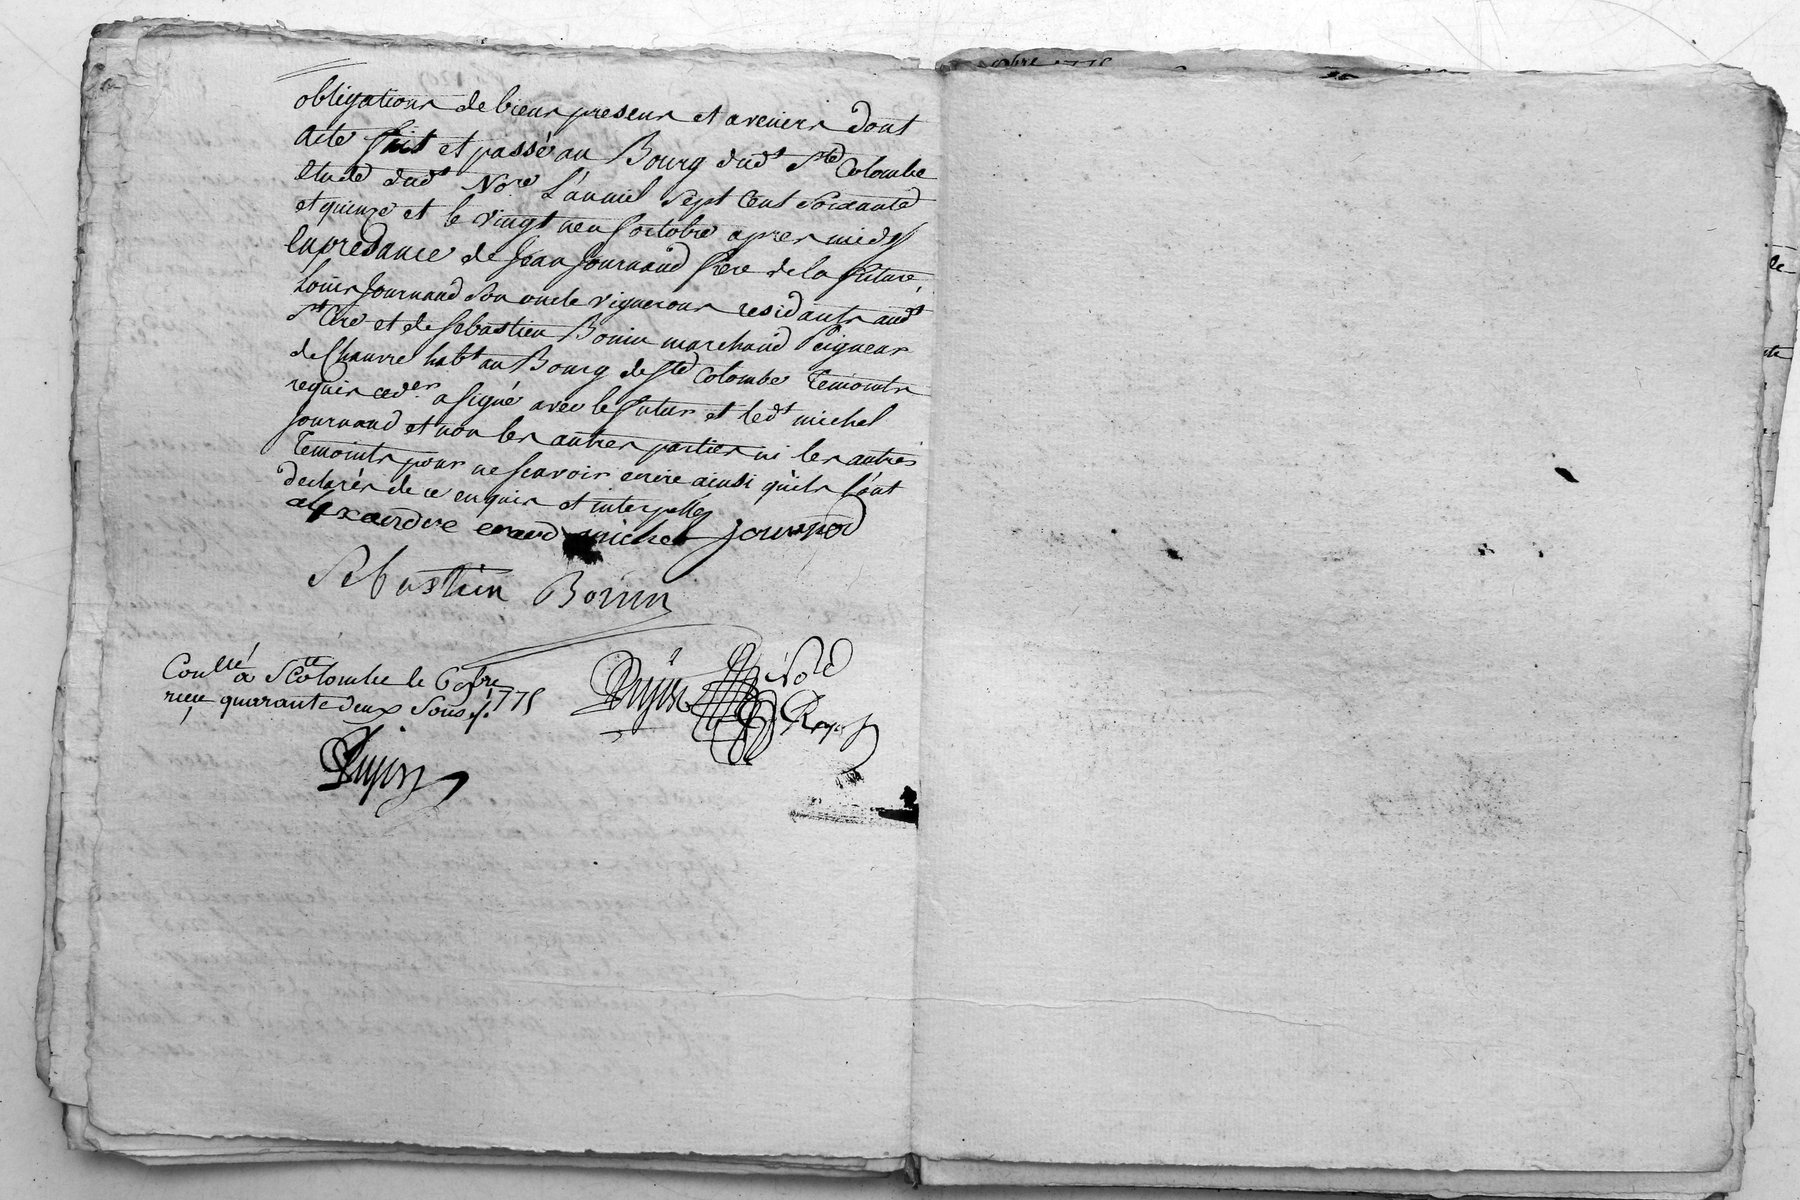 obligations de biens presens et avenirs dont
Acte fait et passé au Bourg dudt Ste Colombe
étude dudt Nore L'an mil sept cent soixante
et quinze et le vingt neuf octobre apres midy
En presance de Jean Journaud frere de la future,
Louis Journaud son oncle vignerons residants audt
St Cire et de Sebastien Bonin marchand Peigneur
de Chanvre habt au Bourg de Ste Colombe Temoints
requis ce der. a signé avec le futur et ledt michel
Journaud et non les autres parties ni les autres
Temoints pour ne scavoir ecrire ainsi qu'ils l'ont
declarés de ce enquis et interpellés
alexandre michel Journod
Sebastien Bonin
Conllé à Ste Colombe le 6 9bre 1775
reçu quarante deux sous
Dujin Nore Royal
Dujin